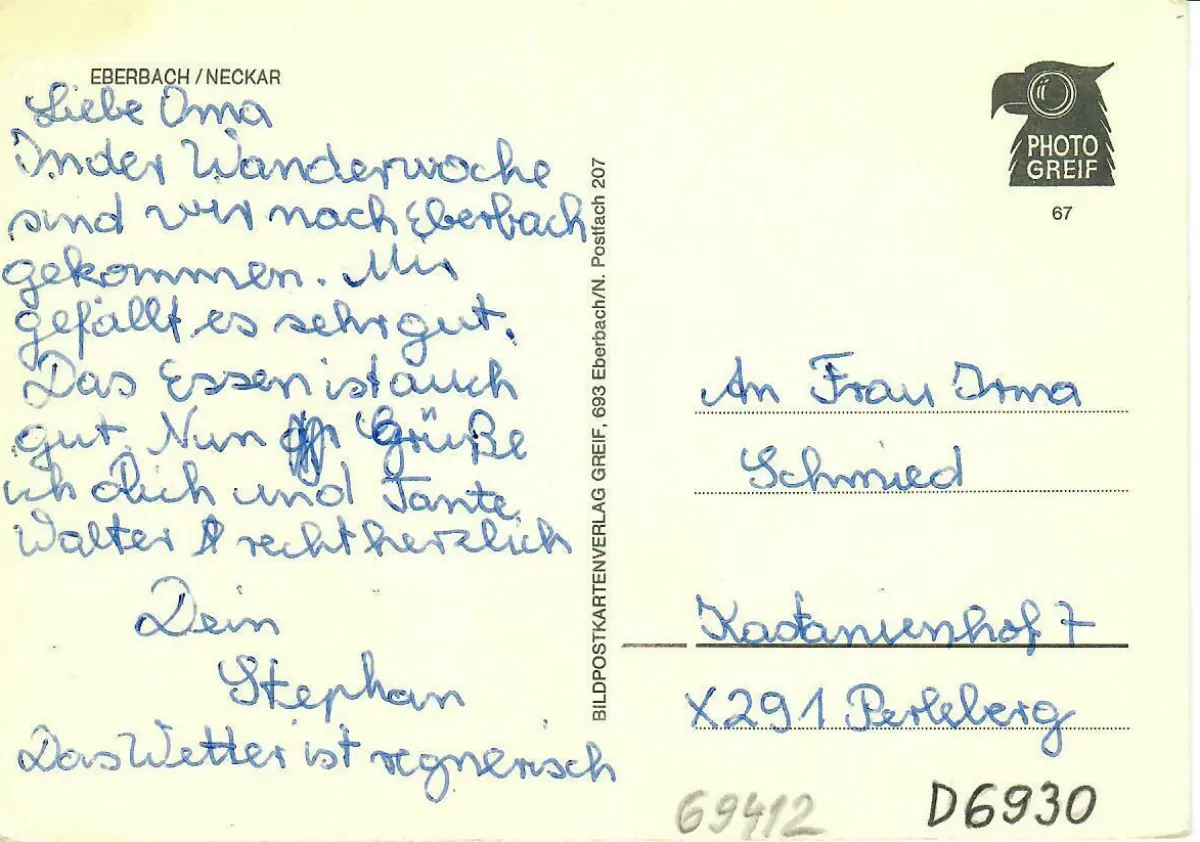 EBERBACH / NECKAR
Liebe Oma
In der Wanderwoche
sind wir nach Eberbach
gekommen. Mir
gefällt es sehr gut.
Das Essen ist auch
gut. Nun Grüße
ich Dich und Tante
Walter recht herzlich
Dein
Stephan
Das Wetter ist regnerisch
BILDPOSTKARTENVERLAG GREIF, 693 Eberbach/N. Postfach 207
PHOTO
GREIF
67
An Frau Irma
Schmied
Kastanienhof 7
X291 Perleberg
69412
D6930